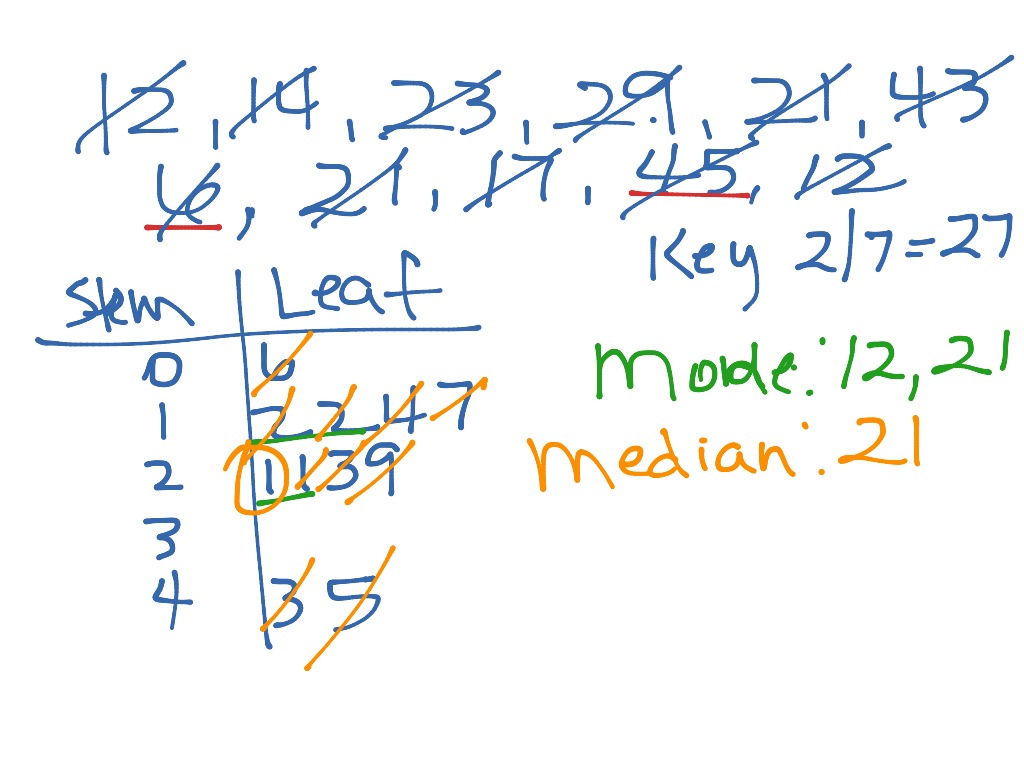 12, 14, 23, 29, 21, 43
6, 21, 17, 45, 12
Key 2|7=27
Stem Leaf
0 6
1 2 2 4 7
2 1 1 3 9
3
4 3 5
Mode: 12, 21
Median: 21